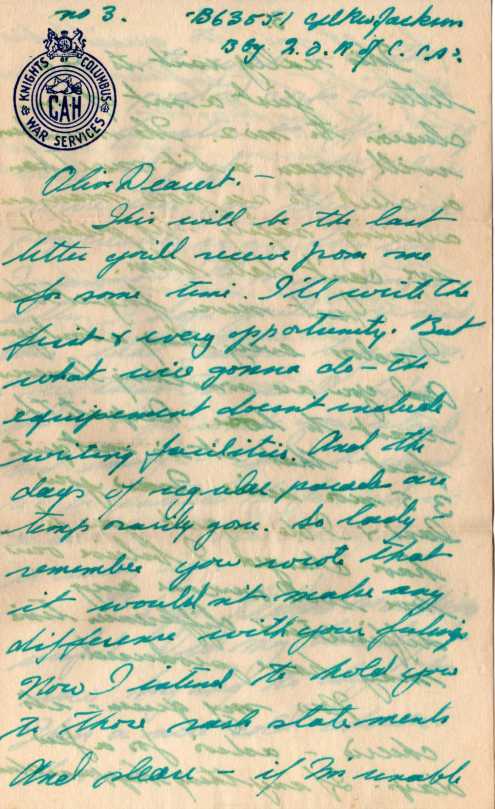 no 3. B63551 Cpl Ken Jackson
B Bty 2. O. R. of C. (A).
KNIGHTS OF COLUMBUS
CAH
WAR SERVICES
Olive Dearest. —
This will be the last
letter you'll receive from me
for some time. I'll write the
first & every opportunity. But
what we're gonna do — the
equipement doesn't include
writing facilities. And the
days of regular parades are
temporarily gone. So lady
remember you wrote that
it wouldn't make any
difference with your feelings
Now I intend to hold you
to those rash statements
And please — if I'm unable